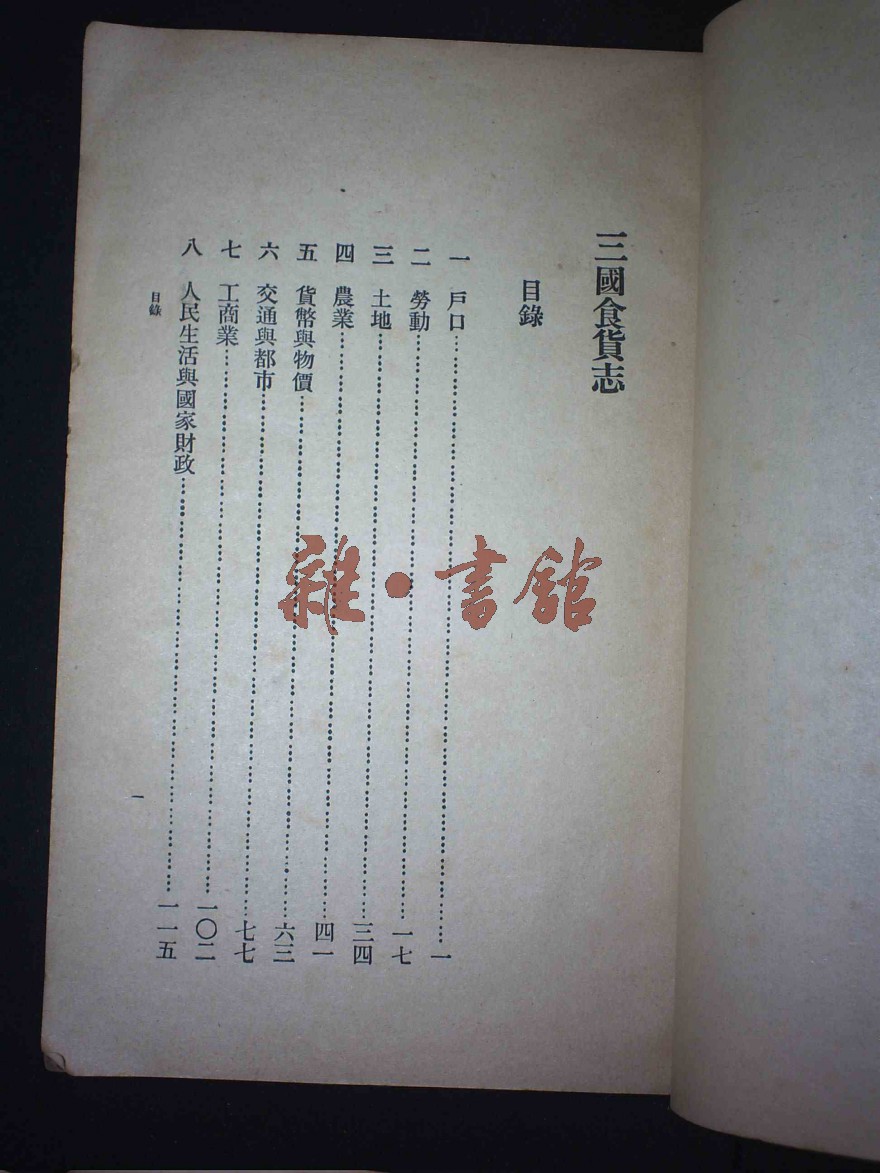 三國食貨志
目錄
一 戶口……一
二 勞動……一七
三 土地……三四
四 農業……四一
五 貨幣與物價……六三
六 交通與都市……七七
七 工商業……一〇二
八 人民生活與國家財政……一一五
目錄
一
雜·書館